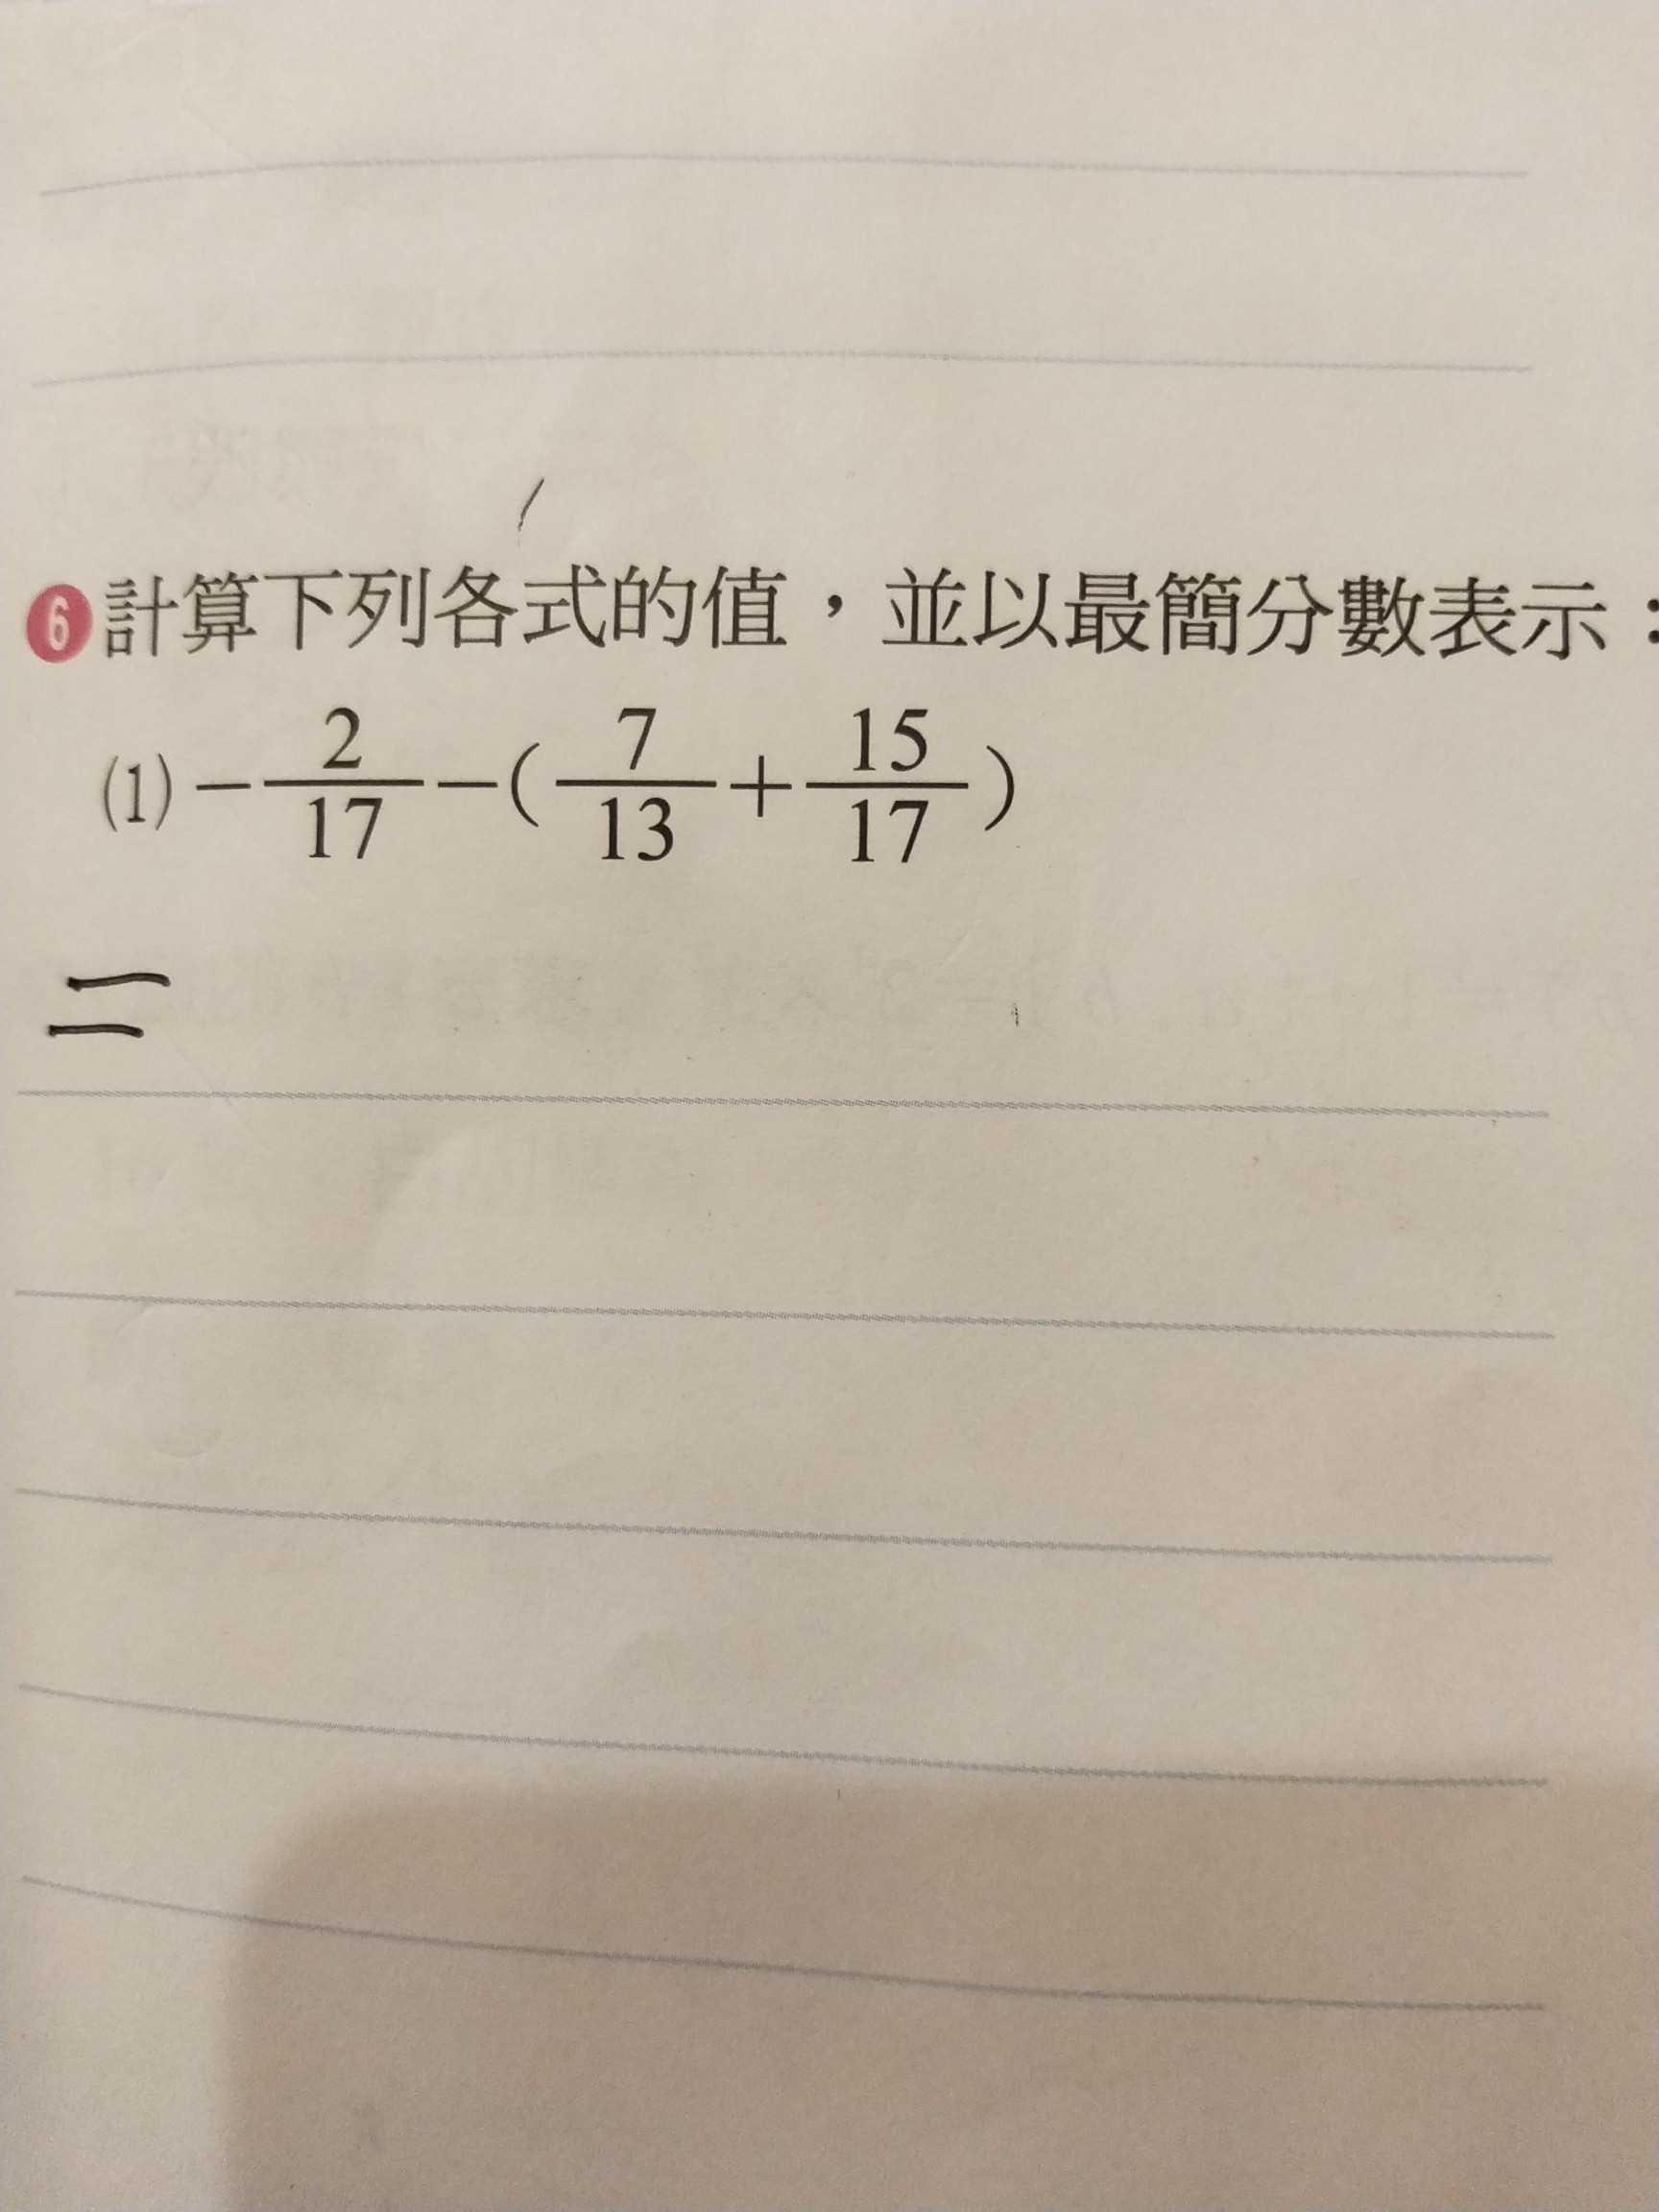 6 計算下列各式的值，並以最簡分數表示：
(1) -2/17-(7/13+15/17)
=